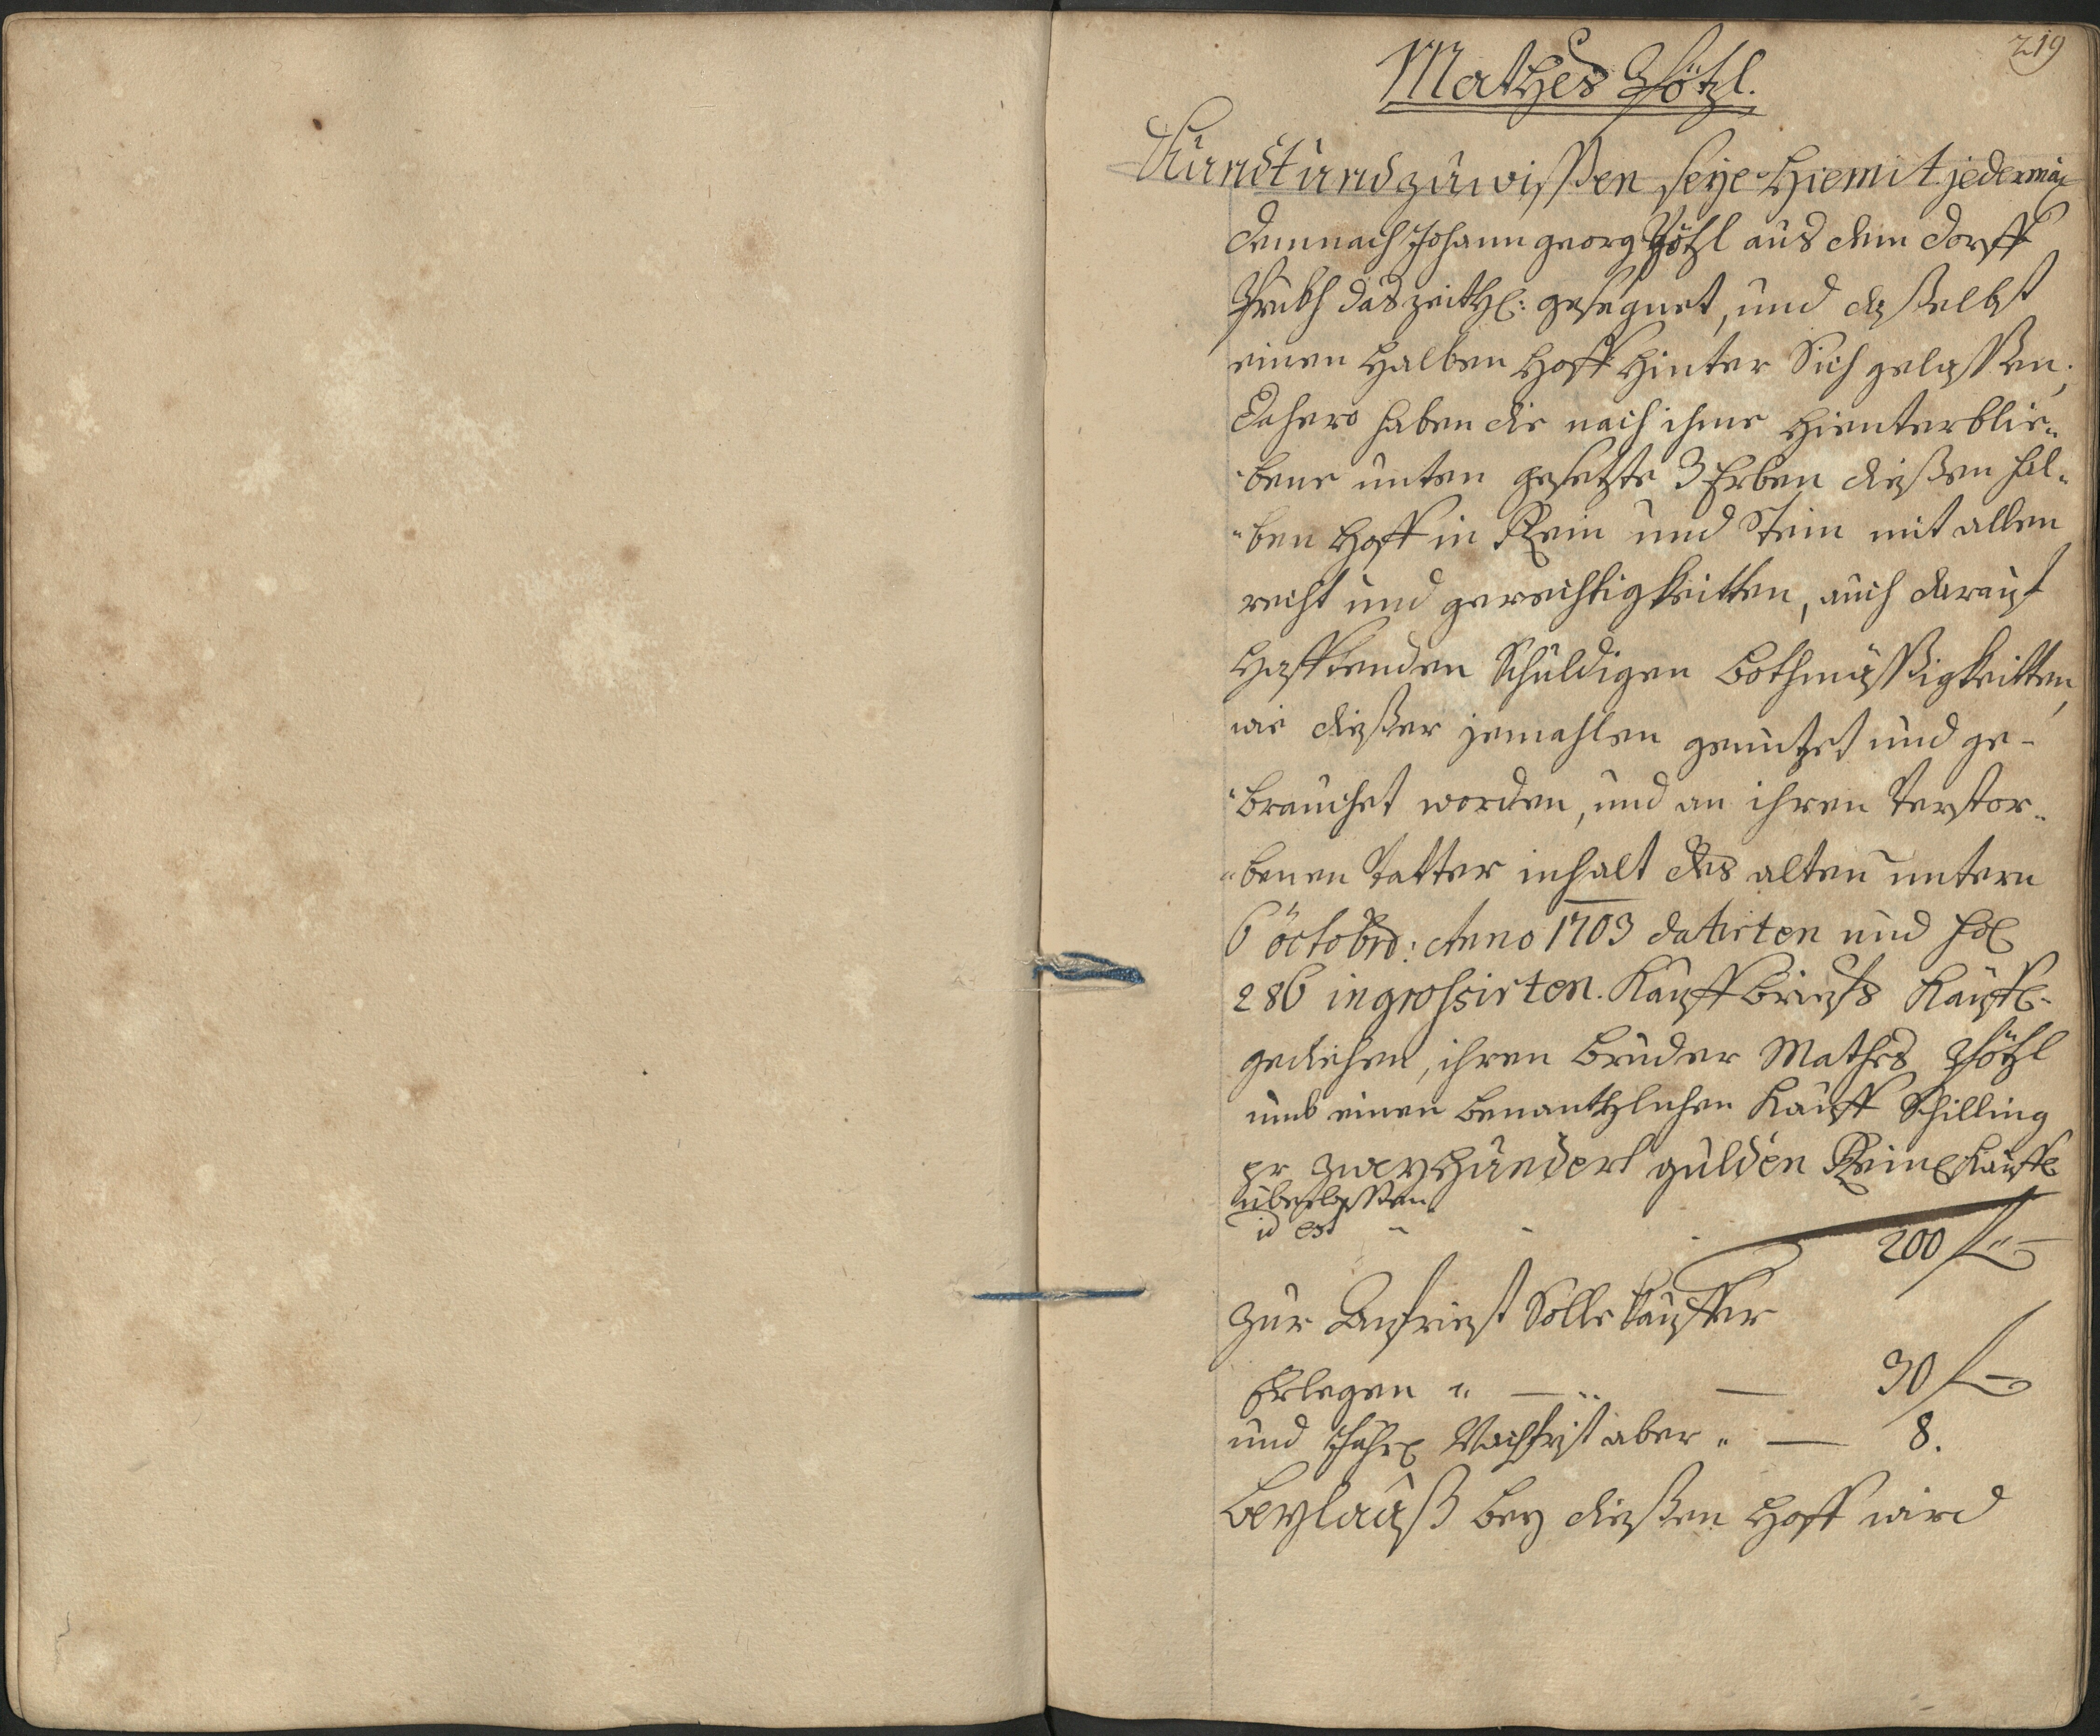 219
Mathes Pötzl.
Kundt und zu wissen seye hiemit jederman
demnach Johann georg Pötzl aus dem dorff
das zeitl: gesegnet, und daselbst
einen halben hoff hinter Sich gelassen,
Dahero haben die nach ihme hienterblie-
bene unten gesetzte 3 Erben diesen hal-
ben hoff in Rein und Stein mit allen
recht und gerechtigkeitten, auch darauf
hafftenden Schuldigen bothmässigkeitten,
wie dieser jemahlen genutzet und ge-
brauchet worden, und an ihren Verstor-
benen Vatter inhalt des alten untern
6 octobrs: Anno 1703 datirten und fol
286 ingrossirten Kauffbriefs Kauffl-
gediehen, ihren bruder Mathes Pötzl
umb einen benantzlichen Kauff Schilling
pr zweyhundert gulden Reinl Kauffl
überlassen
id est - - - 200 f -
zur Anfriest Solle Kauffer
Erlegen " — " — 30 f -
und Jährl Nachfrist aber " — 8.
Beylauß bey diesen hoff wird